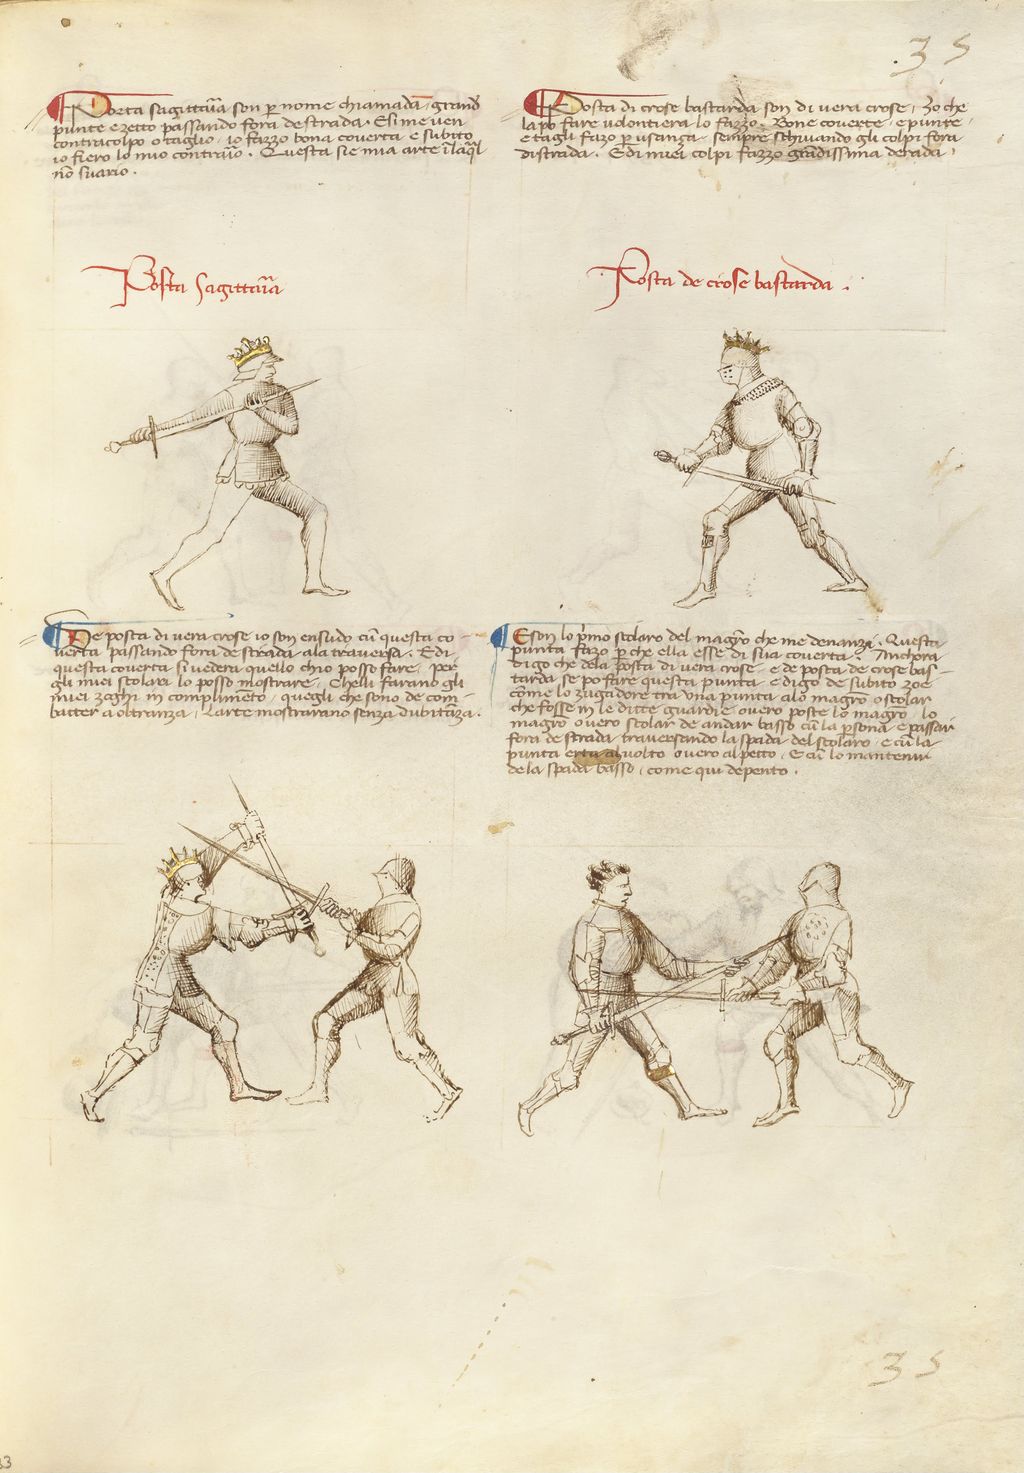 35
Posta Sagittaria son per nome chiamada, grand
punte e zetto passando fora de strada. E si me ven
contra colpo o taglio, io fazzo bona coverta e subito
io fiero lo mio contrario. Questa sie mia arte
non svario.
Posta di crose bastarda son di vera crose, zo che
la po fare volontiera lo fazzo. Bone coverte, e punte,
e tagli fazo per usanza, sempre schivando gli colpi fora
di strada. E di miei colpi fazzo grandissima derada,
Posta Sagittaria
Posta de crose bastarda.
De posta di vera crose io son ensudo cum questa co-
verta passando fora de strada ala traversa. E di
questa coverta si vedera quello ch'io posso fare, per
gli miei scolari lo posso mostrare, che lli farano gli
miei zoghi in complimento, quegli che sono de com-
batter a oltranza, l'arte mostrarano senza dubitanza.
E son lo primo scolaro del magistro che m'è denanzi. Questa
punta fazo per che ella esse di sua coverta. Anchora
digo che de la posta di vera crose e de posta de crose bas-
tarda se po fare questa punta, e digo de subito zoe
come lo zugadore tra una punta a lo magistro o scolar
che fosse in le ditte guardie overo poste lo magistro, lo
magistro overo scolar de andar basso cum la persona e passar
fora de strada traversando la spada del scolaro e cum la
punta erta al volto overo al petto. E cum lo mantenir
de la spada basso, come qui depento.
35
33